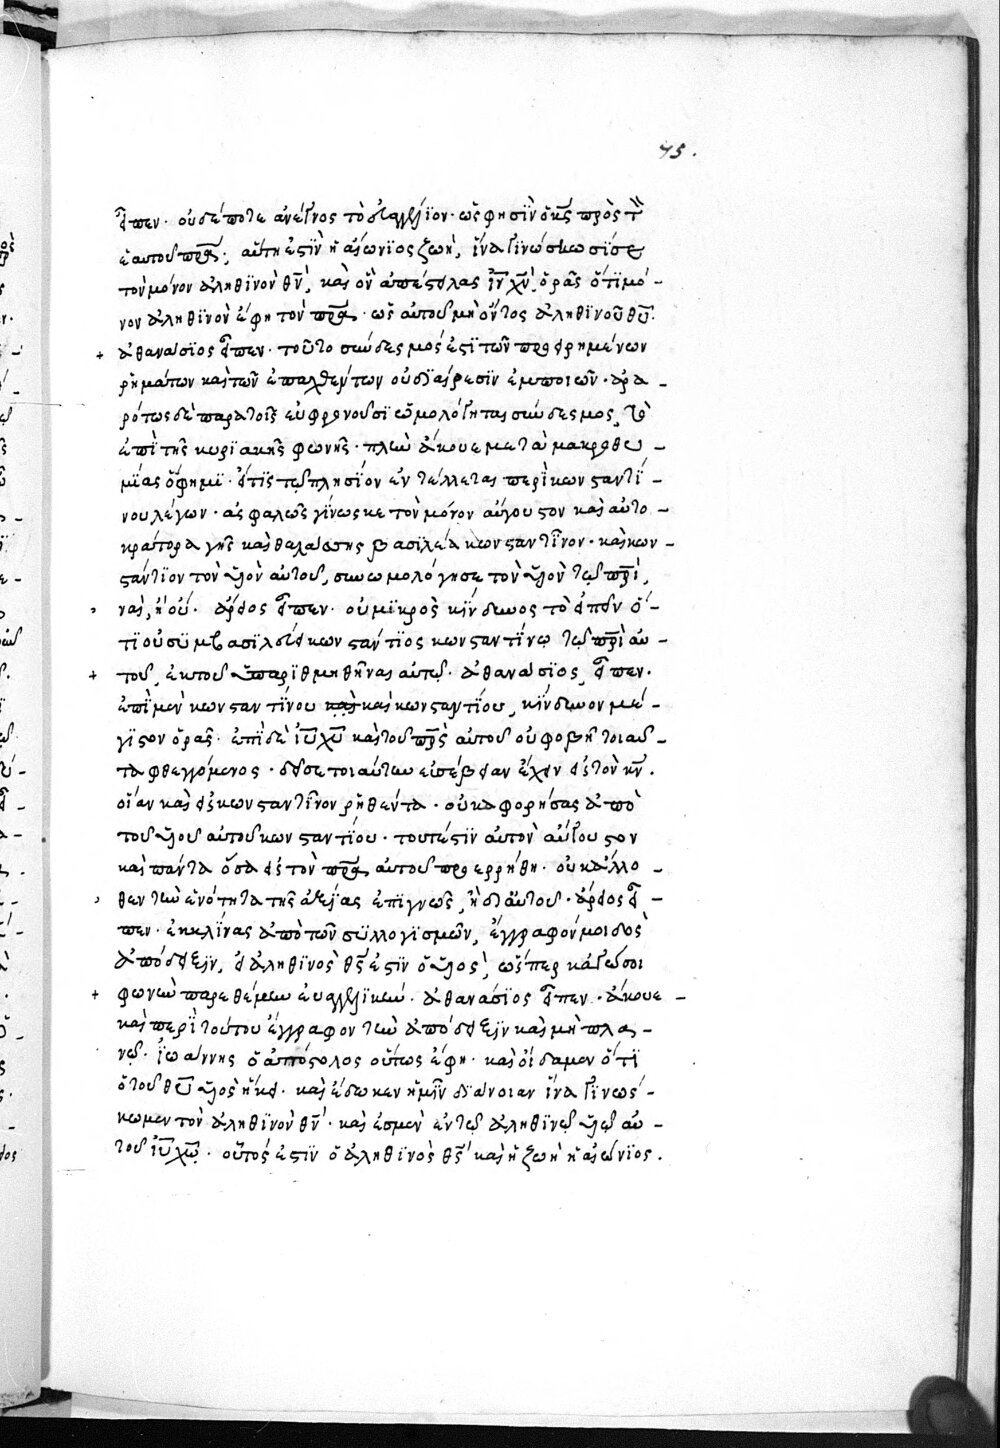 75.
εἶπεν· οὐδέποτε ἀνέγνος τὸ εὐαγγέλϊον· ὥς φησὶν ὁ κ̅ς̅ πρὸς τὸν
ἑαυτοῦ π̅ρ̅α̅; αὕτη ἐστὶν ἡ αἰώνιος ζωὴ, ἵνα γϊνώσκωσί σε
τὸν μόνον ἀληθϊνὸν θ̅ν̅, καὶ ὃν ἀπέστειλας ι̅ν̅ χ̅ν̅; ὁρᾶς ὅτι μό-
νον ἀληθϊνὸν ἔφη τὸν π̅ρ̅α̅· ὡς αὐτοῦ μὴ ὄντος ἀληθϊνοῦ θ̅υ̅.
+ ἀθανάσϊος εἶπεν· τοῦτο σύνδεσμός ἐστϊ τῶν προειρημένων
ῥημάτων καὶ τῶν ἐπαχθέντων οὐ δϊαίρεσϊν ἐμποιῶν· ἀρα-
ρότως δὲ παρὰ τοῖς εὐφρονοῦσϊ ὡμολόγηται σύνδεσμος, τὸ
ἐπὶ τῆς κυρϊακῆς φωνῆς· πλὴν ἄκουε μετὰ μακροθυ-
μίας ὅ φημϊ· εἴ τϊς τῷ πλησίον ἐντέλλεται περὶ κωνσταντί-
νου λέγων· ἀσφαλῶς γίνωσκε τὸν μόνον αὔγουστον καὶ αὐτο-
κράτορα γῆς καὶ θαλάσσης βασιλέα κωνσταντῖνον· καὶ κων-
στάντϊον τὸν υἱὸν αὐτοῦ, συνωμολόγησε τὸν υἱὸν τῷ π̅ρ̅ι̅,
ναὶ, ἢ οὔ· ἄρειος εἶπεν· οὐ μϊκρὸς κίνδυνος τὸ εἰπεῖν ὅ-
τϊ οὐ συμβασϊλεύει κωνστάντϊος κωνσταντίνῳ τῷ π̅ρ̅ι̅ αὐ-
+ τοῦ, ἐκ τοῦ συναρϊθμηθῆναι αὐτῷ· ἀθανάσϊος εἶπεν·
ἐπὶ μὲν κωνσταντίνου καὶ κωνσταντίου, κίνδυνον μέ-
γιστον ὁρᾶς· ἐπὶ δὲ ι̅υ̅ χ̅υ̅ καὶ τοῦ π̅ρ̅ς̅ αὐτοῦ οὐ φοβῇ τοιαῦ-
τα φθεγγόμενος· δεῖ σε τοιαύτην εὐσέβειαν ἔχειν εἰς τὸν κ̅ν̅·
οἵαν καὶ εἰς κωνσταντῖνον ῥηθέντα· οὐκ ἀφορήσας ἀπὸ
τοῦ υἱοῦ αὐτοῦ κωνσταντίου· τουτέστϊν αὐτὸν αὔγουστον
καὶ πάντα ὅσα εἰς τὸν π̅ρ̅α̅ αὐτοῦ προερρήθη· οὐκ ἄλλο-
θεν τὴν ἑνότητα τῆς ἀξίας ἐπϊγνοῖς, ἢ δϊ' αὐτοῦ· ἄρειος εἶ-
πεν· ἐκκλίνας ἀπὸ τῶν συλλογισμῶν, ἔγγραφόν μοι δὸς
ἀπόδειξϊν, εἰ ἀληθϊνὸς θ̅ς̅ ἐστϊν ὁ υἱὸς, ὥσπερ κἀγώ σοι
+ φωνὴν παρεθέμην εὐαγγελϊκήν· ἀθανάσϊος εἶπεν· ἄκουε-
καὶ περὶ τούτου ἔγγραφον τὴν ἀπόδειξϊν καὶ μὴ πλα-
νῶ· ϊωάννης ὁ ἀπόστολος οὕτως ἔφη· καὶ οἴδαμεν ὅτϊ
ὁ τοῦ θ̅υ̅ υἱὸς ἥκει· καὶ ἔδωκεν ἡμῖν δϊάνοιαν ἵνα γϊνώσ-
κωμεν τὸν ἀληθϊνὸν θ̅ν̅· καὶ ἐσμὲν ἐν τῷ ἀληθϊνῷ υἱῷ αὐ-
τοῦ ι̅υ̅ χ̅ῳ̅· οὗτός ἐστϊν ὁ ἀληθϊνὸς θ̅ς̅ καὶ ἡ ζωὴ ἡ αἰώνϊος.